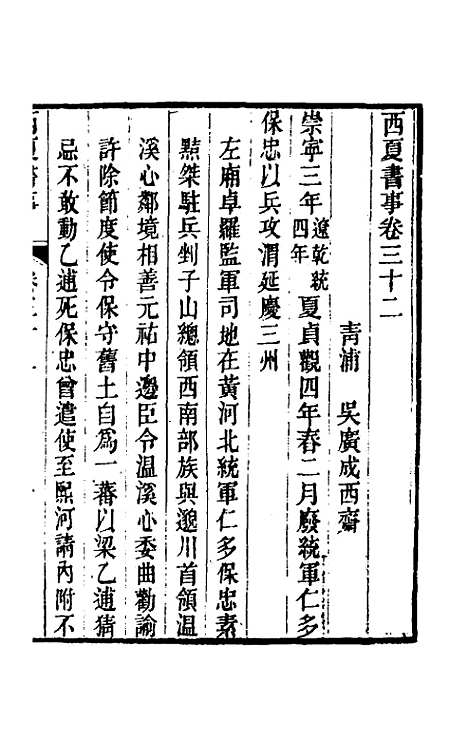 西夏書事卷三十二
青浦　吳廣成西齋
崇寧三年遼乾統四年夏貞觀四年春二月廢統軍仁多
保忠以兵攻渭延慶三州
左廂卓羅監軍司地在黃河北統軍仁多保忠素
黠桀駐兵剉子山總領西南部族與邈川首領溫
溪心鄰境相善元祐中邊臣令溫溪心委曲勸諭
許除節度使令保守舊土自爲一蕃以梁乙逋猜
忌不敢動乙逋死保忠曾遣使至熙河請內附不